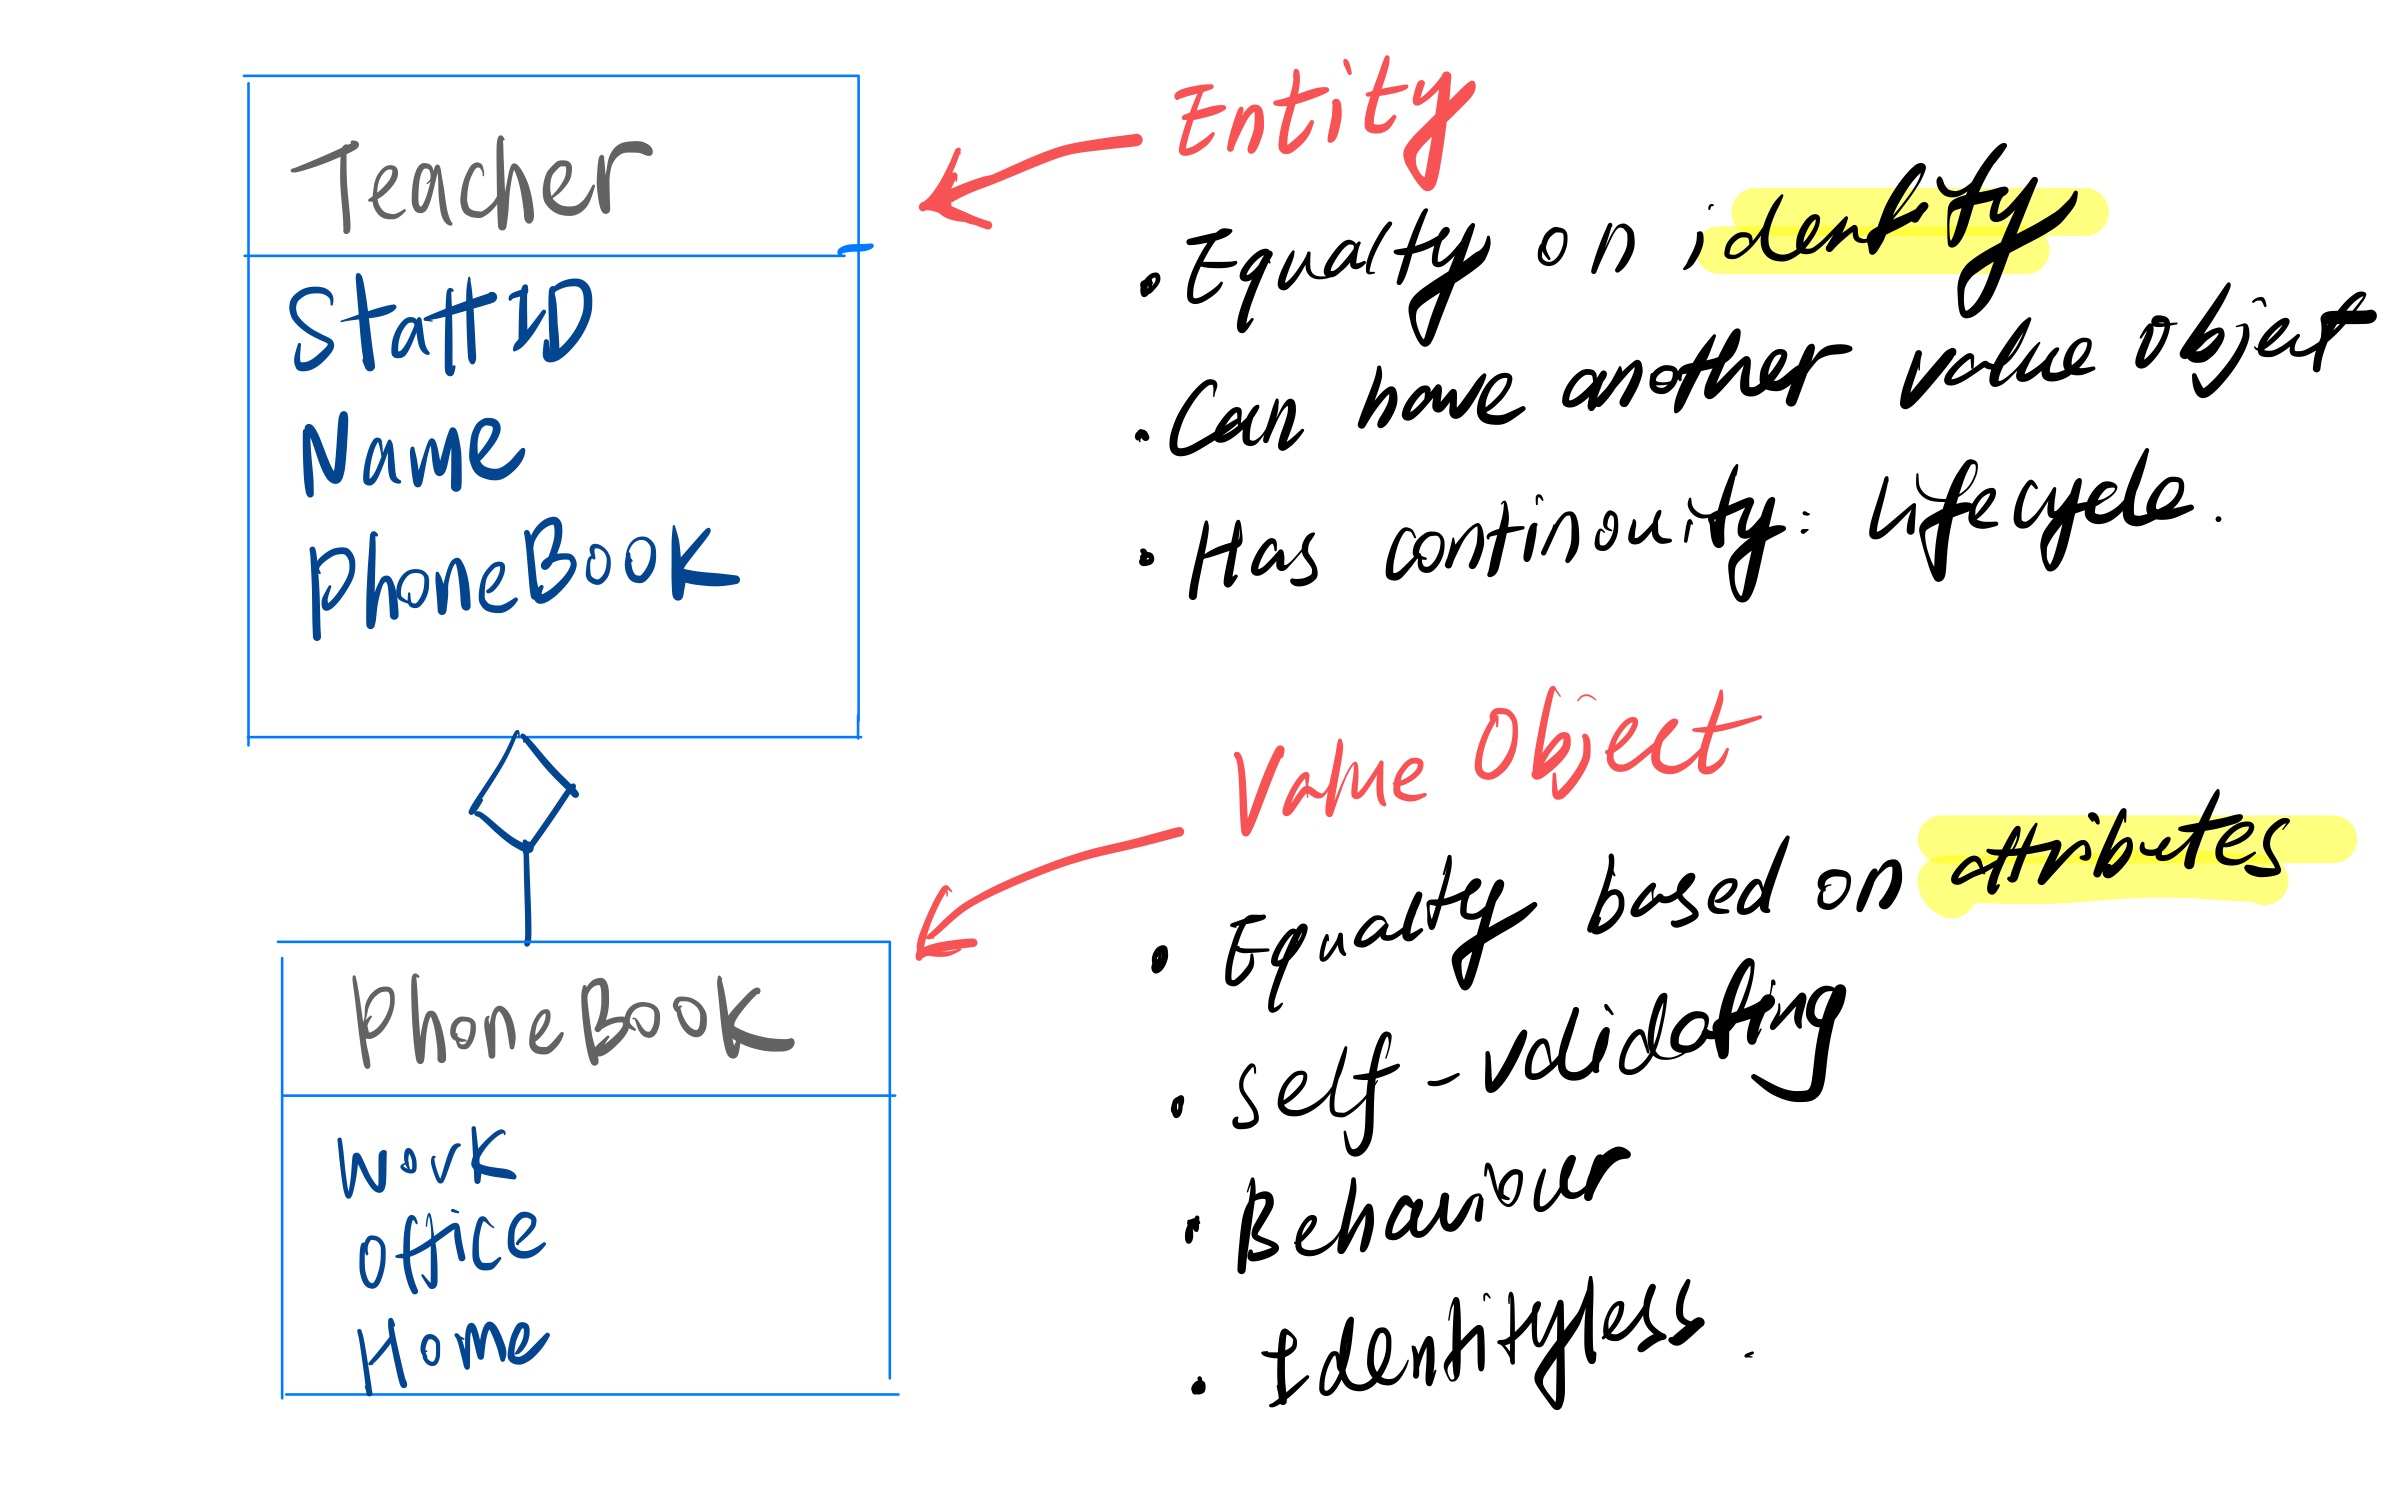 Teacher
StaffID
Name
PhoneBook
PhoneBook
Work
Office
Home
Entity
• Equality on identity
• Can have another value object
• Has continuity. Lifecycle.
Value Object
• Equality based on attributes
• Self-validating
• Behaviour
• Identityless.